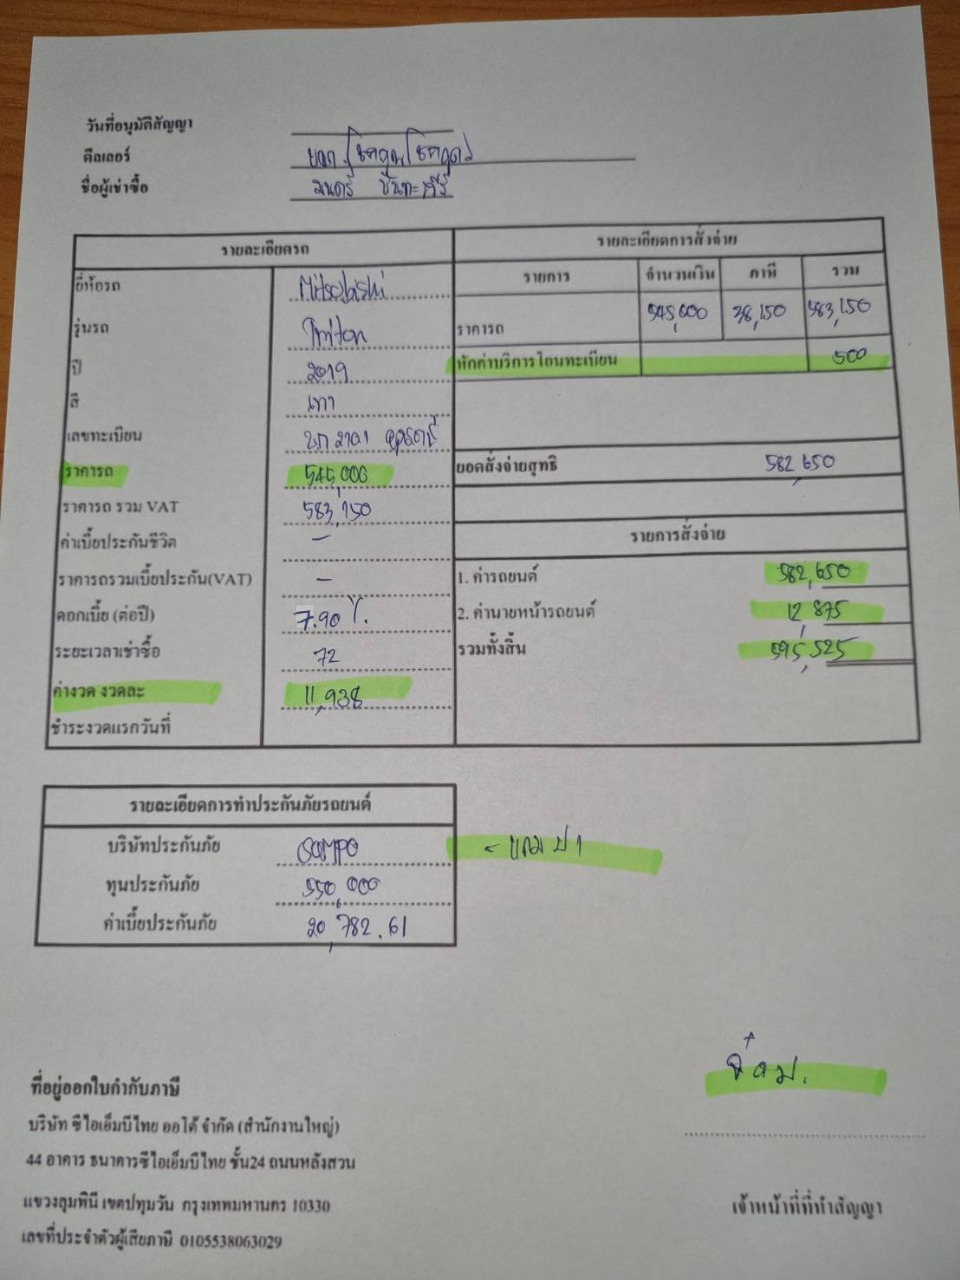 วันที่อนุมัติสัญญา
ดีลเลอร์
ชื่อผู้เช่าซื้อ มนตรี
รายละเอียดรถ
ยี่ห้อรถ Mitsubishi
รุ่นรถ Triton
ปี 2019
สี เทา
เลขทะเบียน
ราคารถ 545,000
ราคารถ รวม VAT 583,150
ค่าเบี้ยประกันชีวิต –
ราคารถรวมเบี้ยประกัน(VAT) –
ดอกเบี้ย (ต่อปี) 7.90 %.
ระยะเวลาเช่าซื้อ 72
ค่างวด งวดละ 11,938
ชำระงวดแรกวันที่
รายละเอียดการสั่งจ่าย
รายการ จำนวนเงิน ภาษี รวม
ราคารถ 545,000 38,150 583,150
หักค่าบริการโอนทะเบียน 500
ยอดสั่งจ่ายสุทธิ 582,650
รายการสั่งจ่าย
1. ค่ารถยนต์ 582,650
2. ค่านายหน้ารถยนต์ 12,875
รวมทั้งสิ้น 595,525
รายละเอียดการทำประกันภัยรถยนต์
บริษัทประกันภัย SOMPO
- แถม ป 1
ทุนประกันภัย 550,000
ค่าเบี้ยประกันภัย 20,782.61
ที่อยู่ออกใบกำกับภาษี
บริษัท ซีไอเอ็มบีไทย ออโต้ จำกัด (สำนักงานใหญ่)
44 อาคาร ธนาคารซีไอเอ็มบีไทย ชั้น24 ถนนหลังสวน
แขวงลุมพินี เขตปทุมวัน กรุงเทพมหานคร 10330
เลขที่ประจำตัวผู้เสียภาษี 0105538063029
เจ้าหน้าที่ที่ทำสัญญา